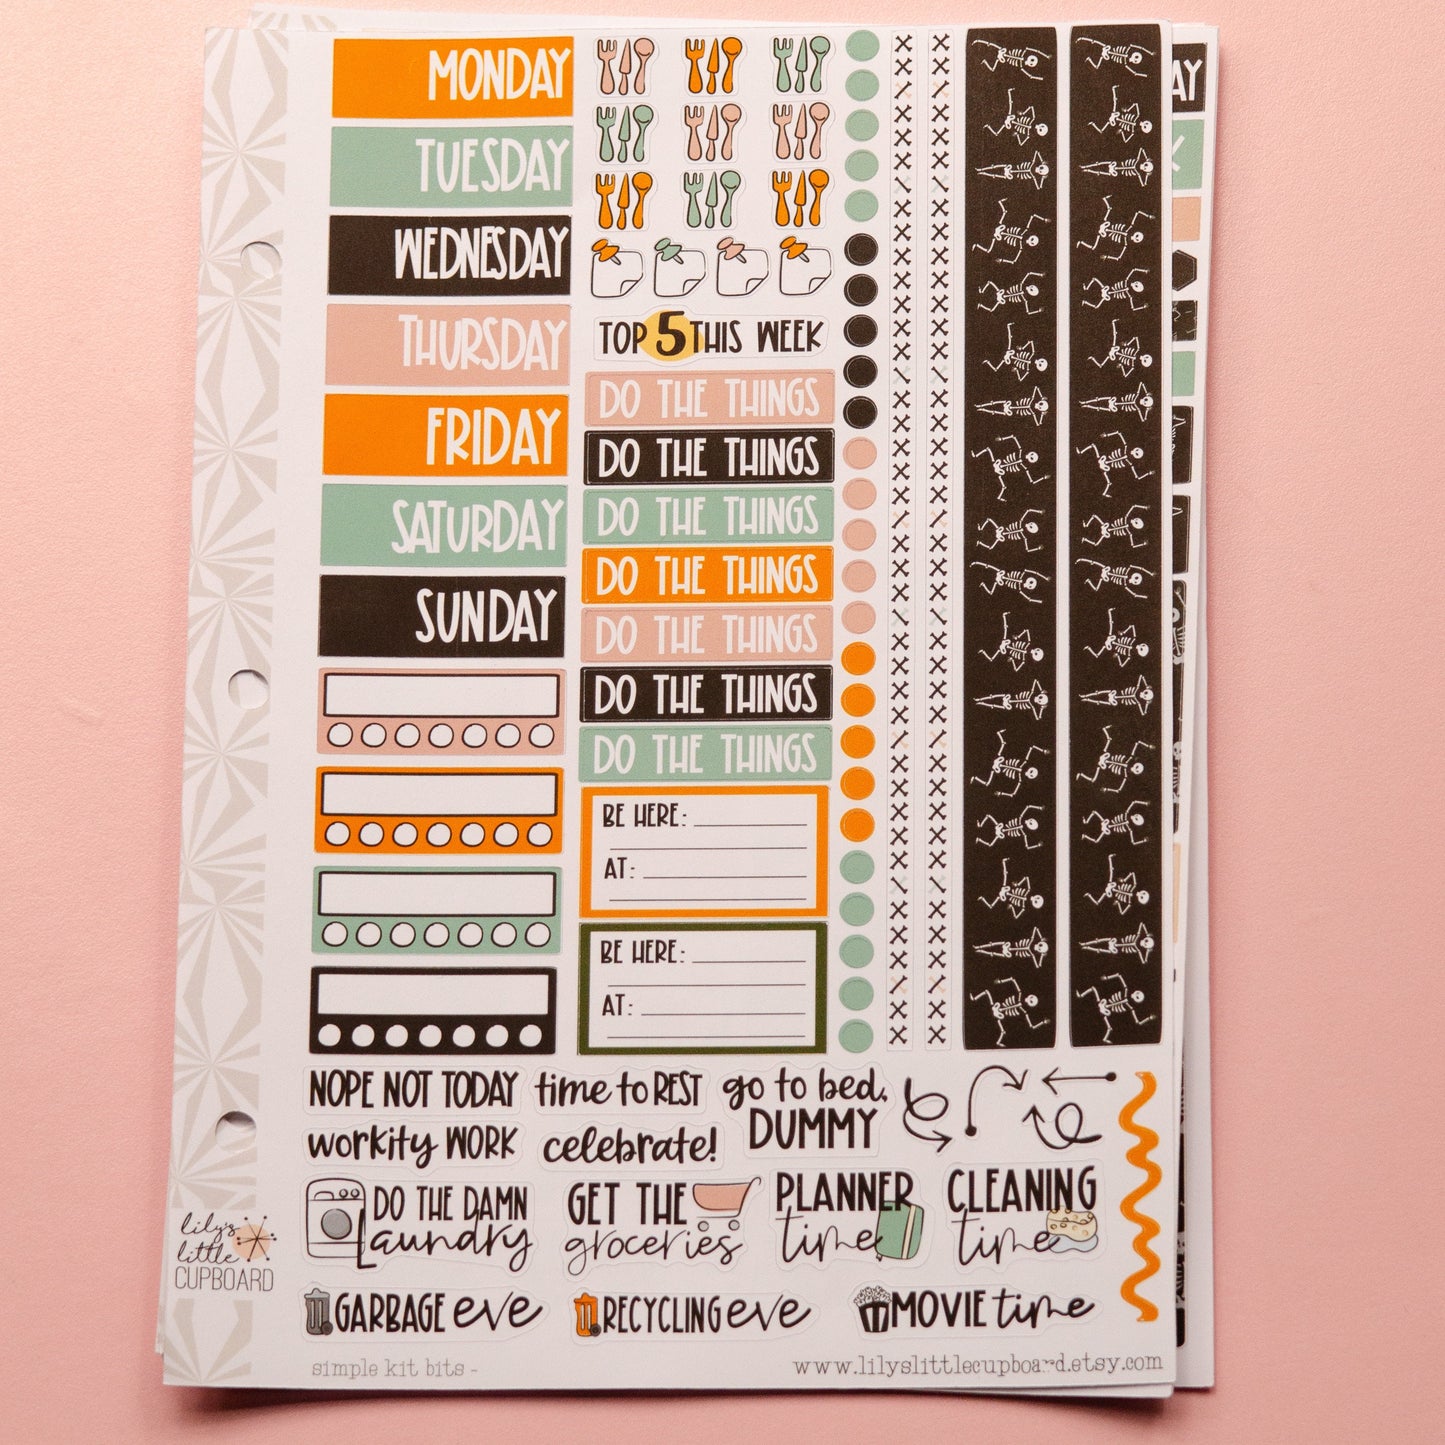 MONDAY
TUESDAY
WEDNESDAY
THURSDAY
FRIDAY
SATURDAY
SUNDAY
TOP 5 THIS WEEK
DO THE THINGS
DO THE THINGS
DO THE THINGS
DO THE THINGS
DO THE THINGS
DO THE THINGS
DO THE THINGS
BE HERE:
AT:
BE HERE:
AT:
AY
NOPE NOT TODAY
time to REST
go to bed,
DUMMY
workity WORK
celebrate!
DO THE DAMN
Laundry
GET THE
groceries
PLANNER
time
CLEANING
time
GARBAGE eve
RECYCLING eve
MOVIE time
lily's
little
CUPBOARD
simple kit bits -
www.lilyslittlecupboard.etsy.com